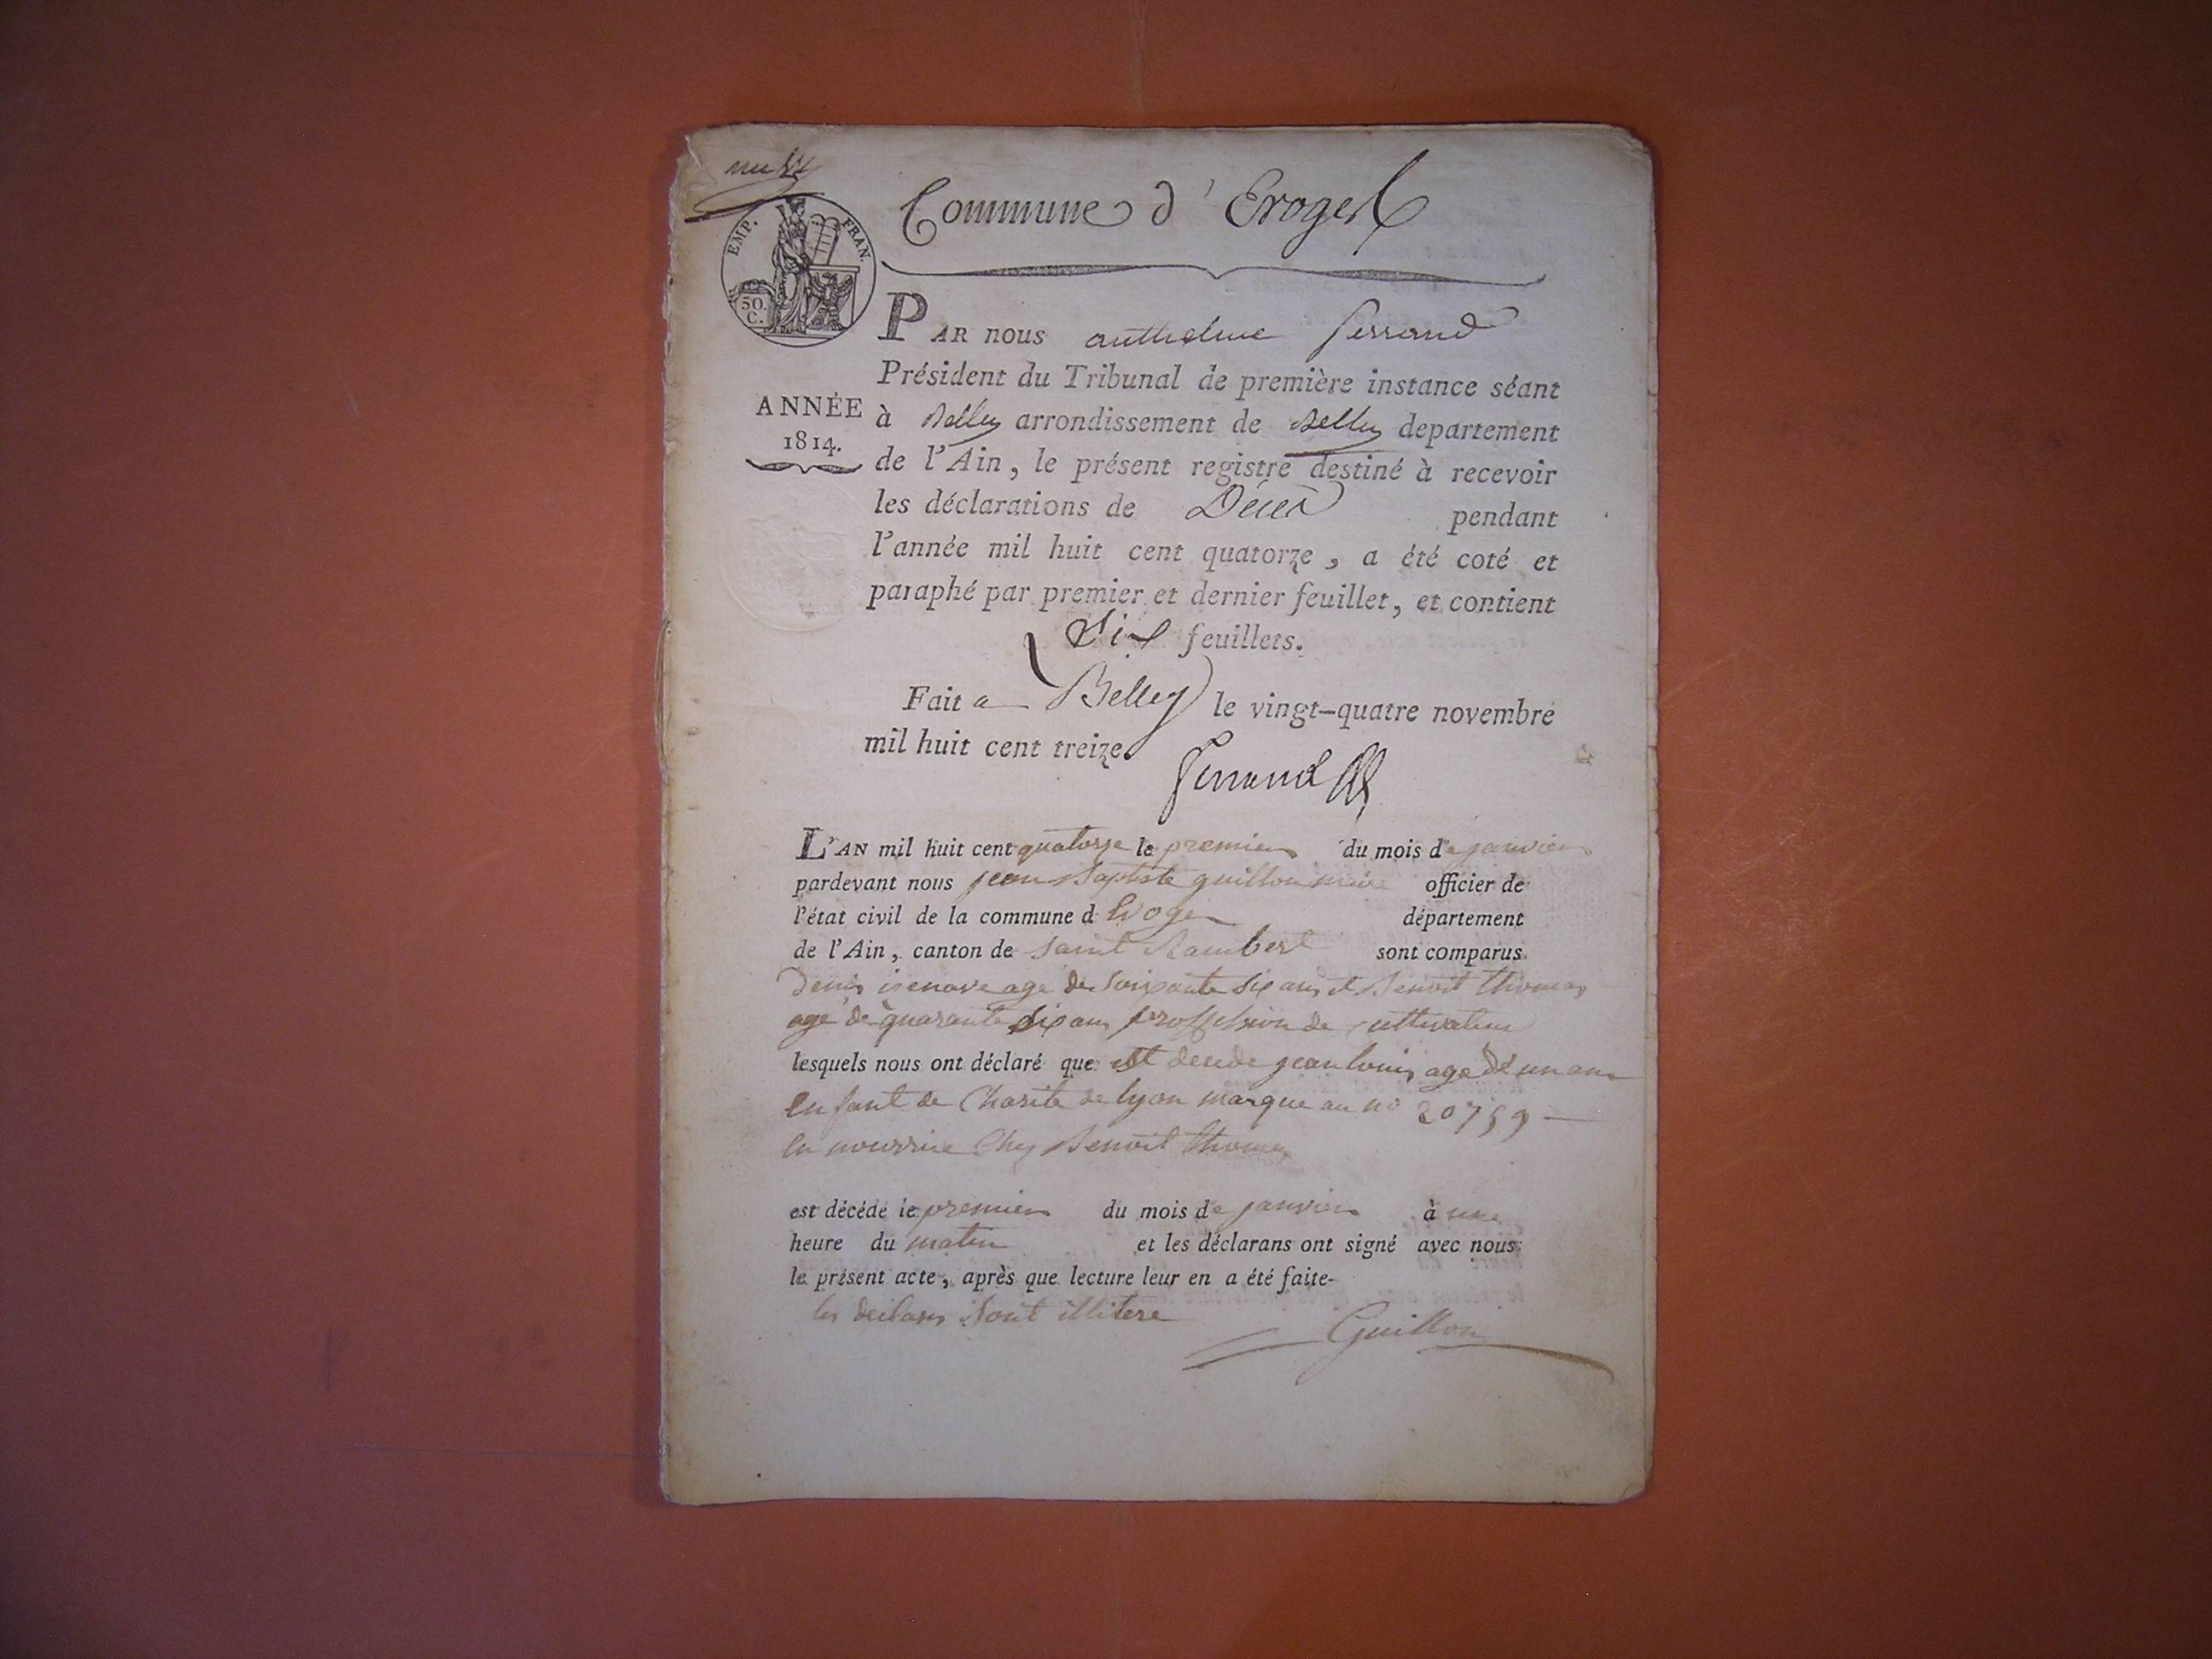 Commune d'Evoges
EMP. FRAN.
50. C.
PAR nous anthelme ferrand
Président du Tribunal de première instance séant
ANNÉE
1814.
à Belley arrondissement de Belley departement
de l'Ain, le présent registre destiné à recevoir
les déclarations de Décès pendant
l'année mil huit cent quatorze, a été coté et
paraphé par premier et dernier feuillet, et contient
Six feuillets.
Fait a Belley le vingt-quatre novembre
mil huit cent treize.
ferrand
L'AN mil huit cent quatorze le premier du mois de janvier
pardevant nous jean Baptiste guillon maire officier de
l'état civil de la commune d Evoge département
de l'Ain, canton de saint Rambert sont comparus
Denis age de soixante six ans et Benoit thomas
age de quarante six ans de cultivateur
lesquels nous ont déclaré que est decede jean louis age de un ans
enfant de Charite de lyon marque au no 20759
en nourrice Chez Benoit thomas
est décédé le premier du mois de janvier à une
heure du matin et les déclarans ont signé avec nous
le présent acte, après que lecture leur en a été faite
les sont illitere
Guillon